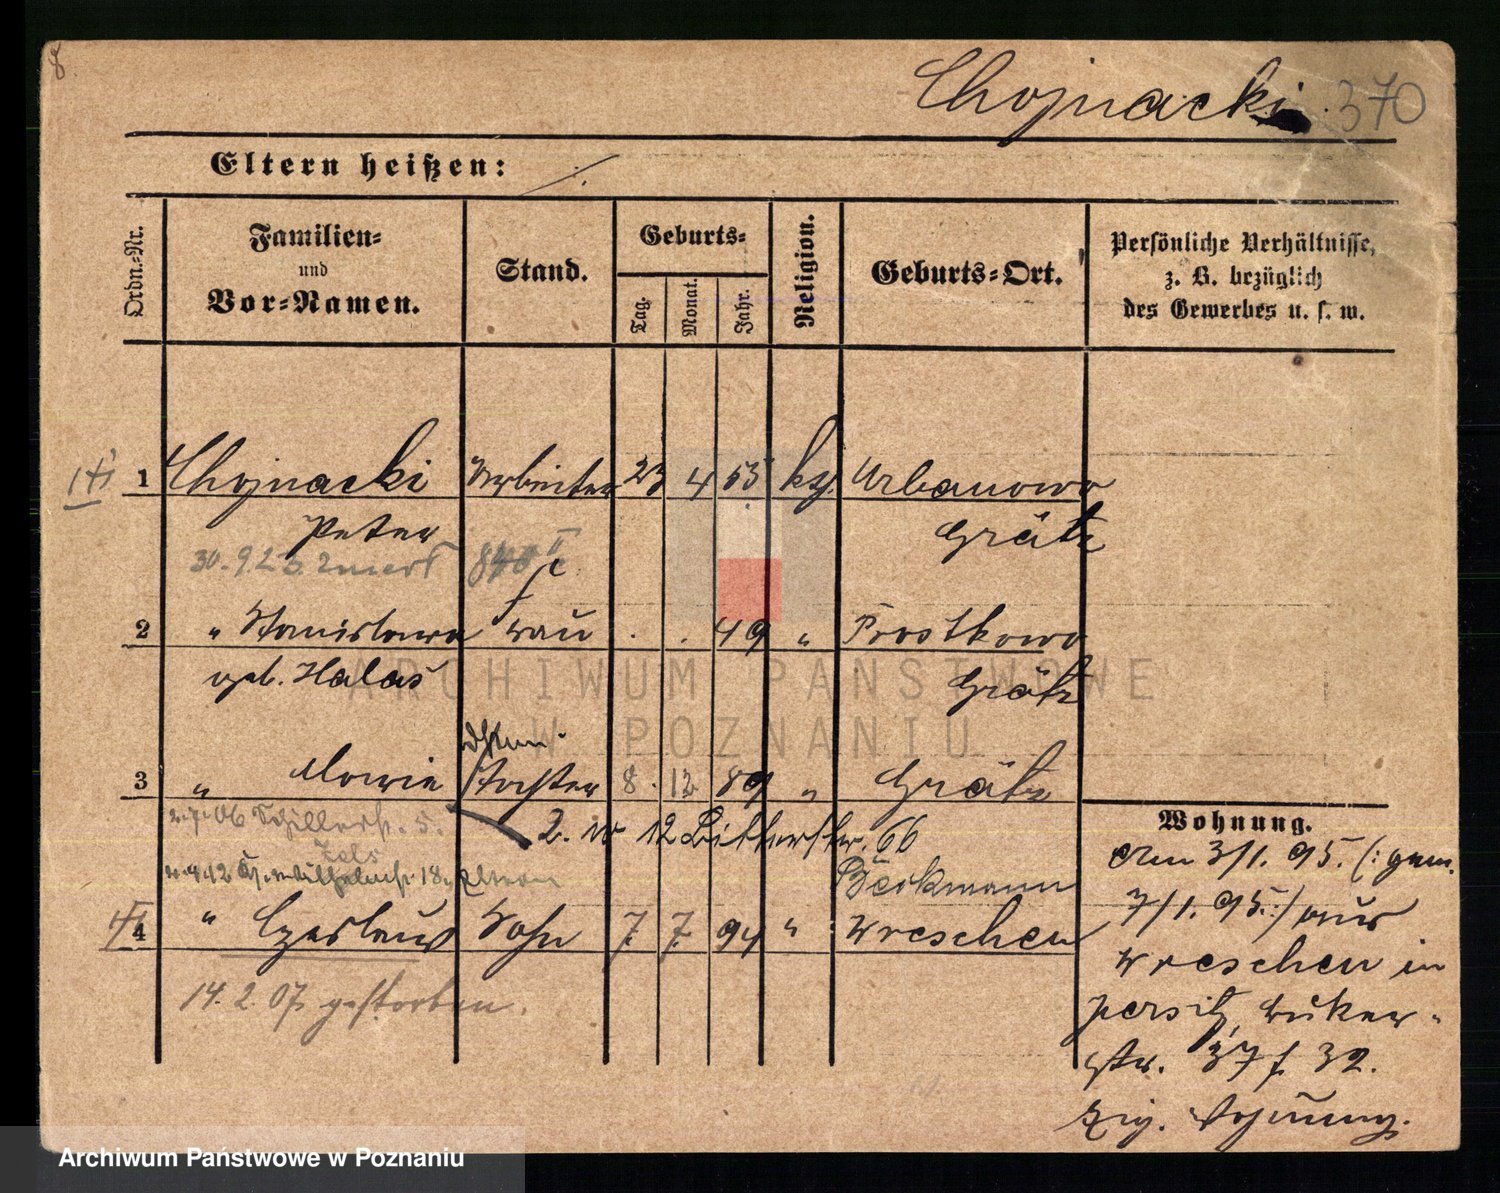 8
Chojnacki 370
Eltern heißen: /.
Ordn.-Nr.
Familien-
und
Vor-Namen.
Stand.
Geburts-
Tag.
Monat.
Jahr.
Religion.
Geburts-Ort.
Persönliche Verhältnisse,
z. B. bezüglich
des Gewerbes u. s. w.
1 Chojnacki Arbeiter 23 4 53 kg. Urbanowo
Peter Grätz
30. 9. 25.
2 " Stanislawa Frau . . 49 " Prostkowo
geb. Halas Grätz
ARCHIWUM PAŃSTWOWE
W POZNANIU
3 " Marie Tochter 8. 12 89 " Grätz
2. 7. 06 Schillerstr. 5. 2. 10 12 Bitterstr. 66
Wilhelmstr. 18 Beckmann
4 " Czeslaus Sohn 7. 7. 94 " Wreschen
14. 2. 07 gestorben.
Wohnung.
Am 3/1. 95. (: gem.
7/1. 95 :) aus
Wreschen in
Jersitz, Buker-
str. 37 f. 32.
Wohnung.
Archiwum Państwowe w Poznaniu